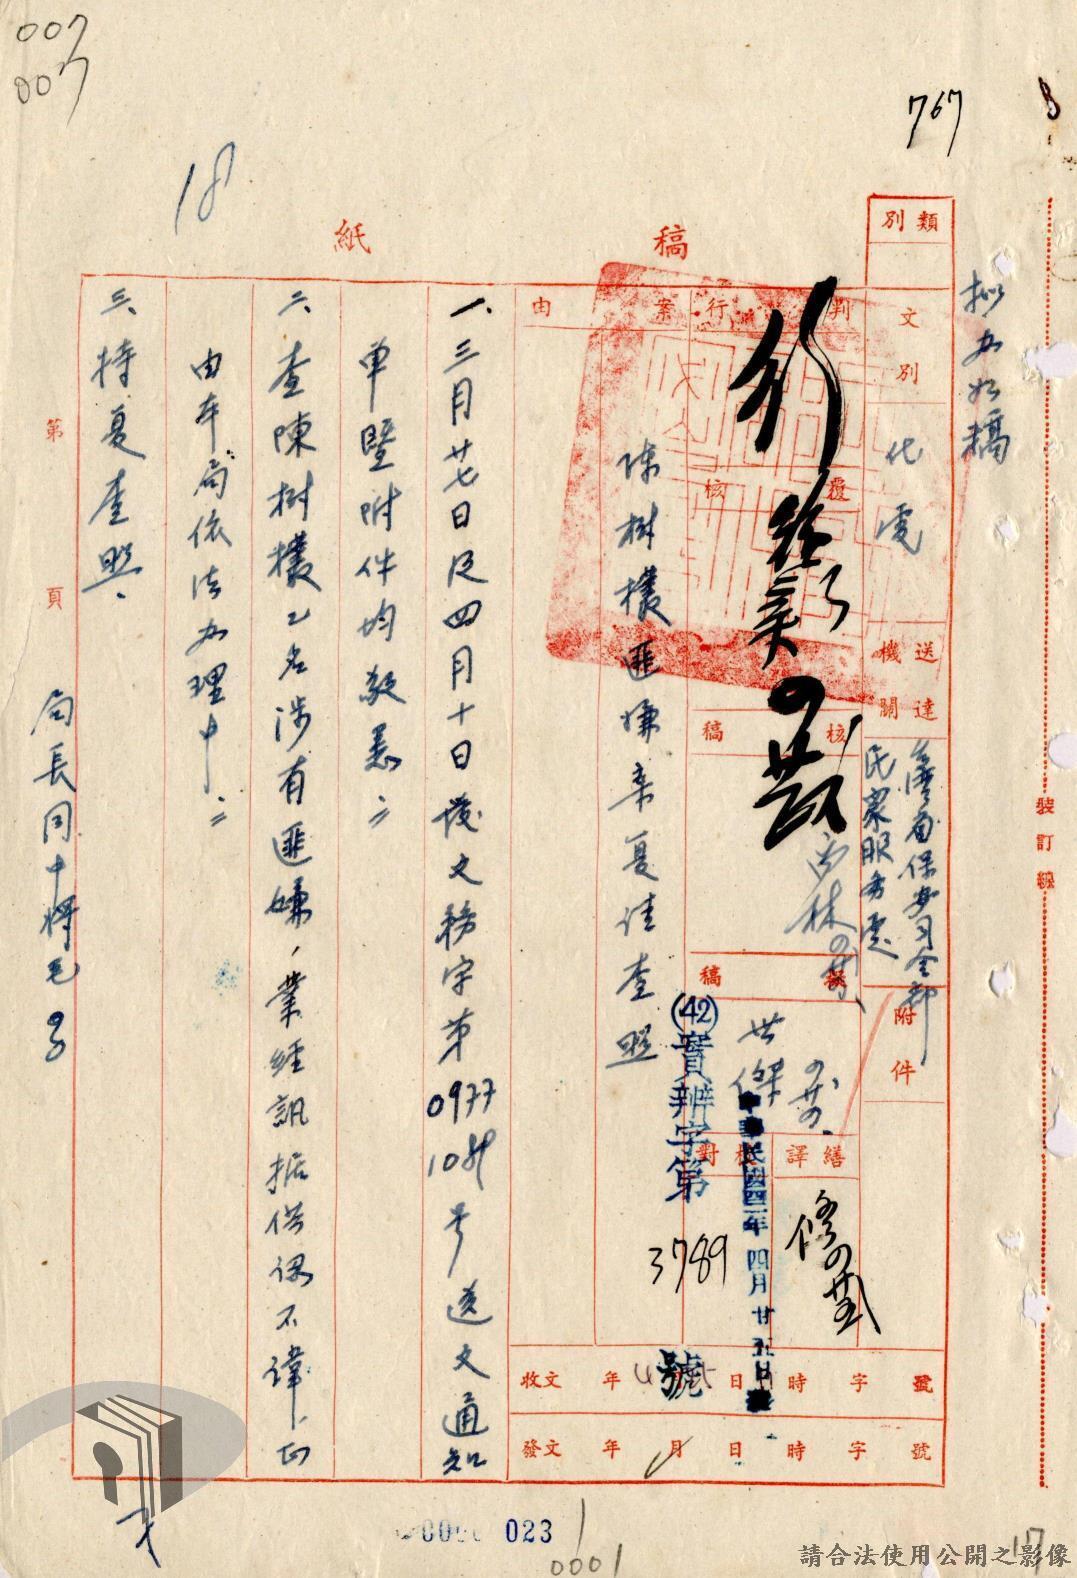 007
007
767
18
稿紙
類別
擬办如稿
文別
代電
送達機關
台灣省保安司令部
民眾服務處
附件
判行
行
覆核
核稿
擬稿
世傑
繕譯
校對
案由
陳樹欉匪嫌案复请查照
(42)實辨字第3789號
中華民國四二年四月廿五日發
收文 年 月 日 時 字 號
發文 年 月 日 時 字 號
一、三月廿七日及四月十日發文務字第0977
號送文通知
单暨附件均敬悉。
二、查陳樹欉乙名涉有匪嫌、業經訊据供認不諱、正
由本局依法办理中。
三、特复查照。
局長同中將毛
第 頁
裝訂線
023
0001
17
請合法使用公開之影像